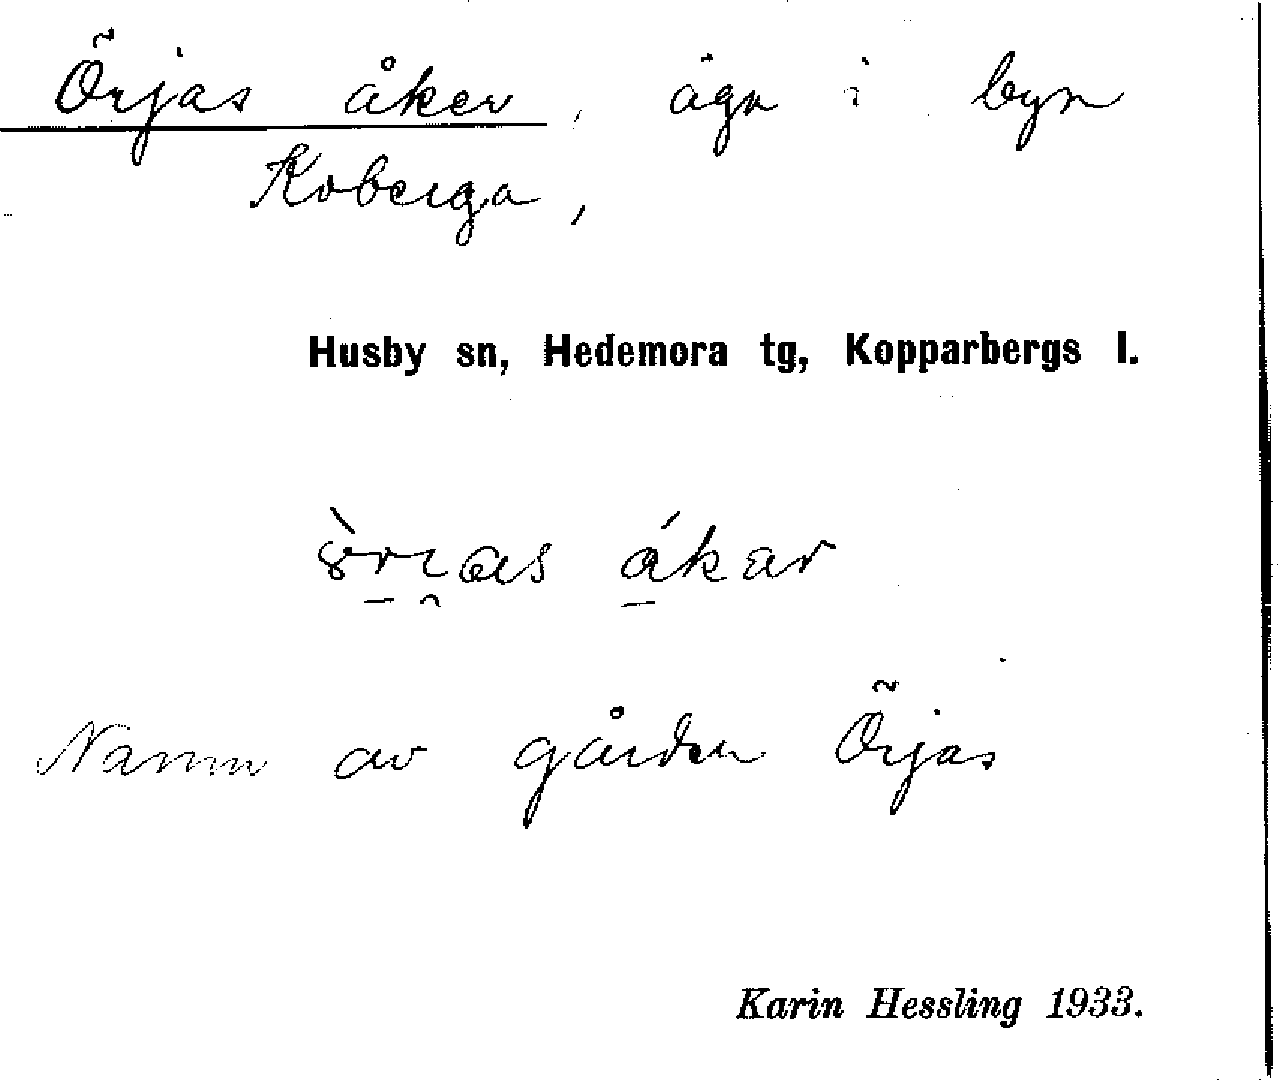 Örjas åker, ägn i byn
Koberga,
Husby sn, Hedemora tg, Kopparbergs l.
åkar
Namn av gården Örjas
Karin Hessling 1933.